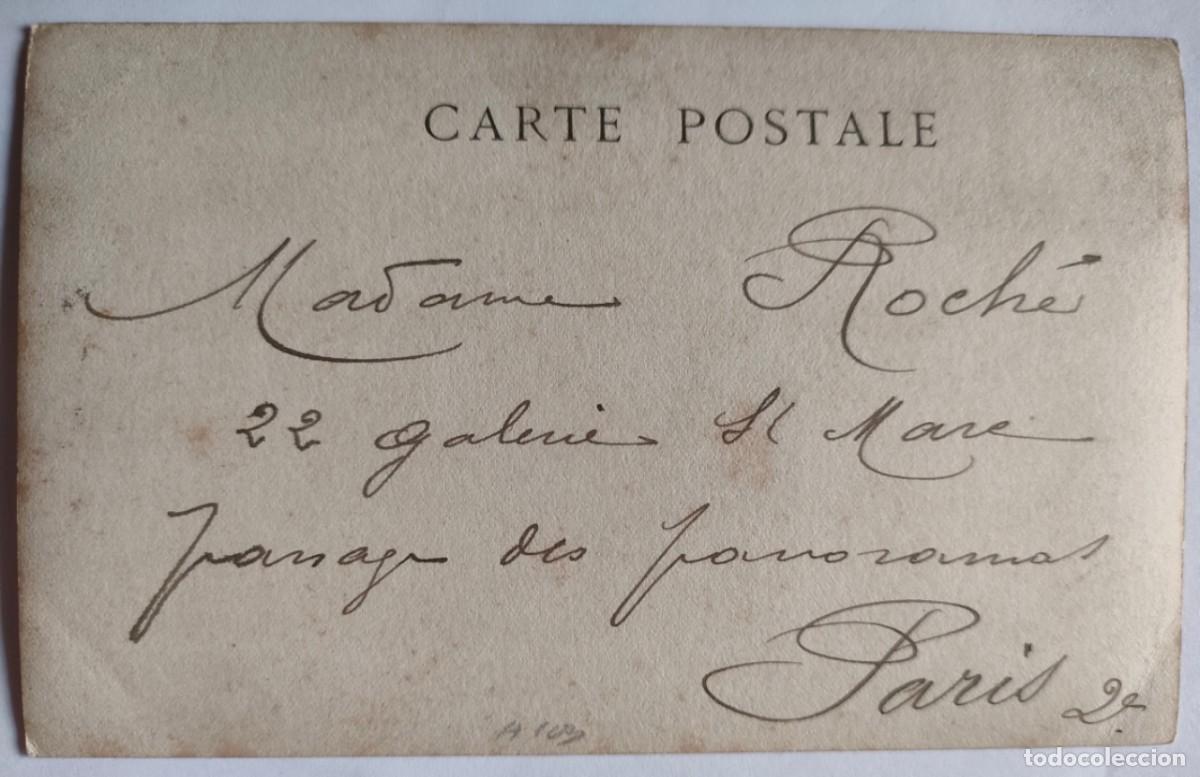 CARTE POSTALE
Madame Roché
22 galerie St Marc
passage des panoramas
Paris 2e
todocoleccion